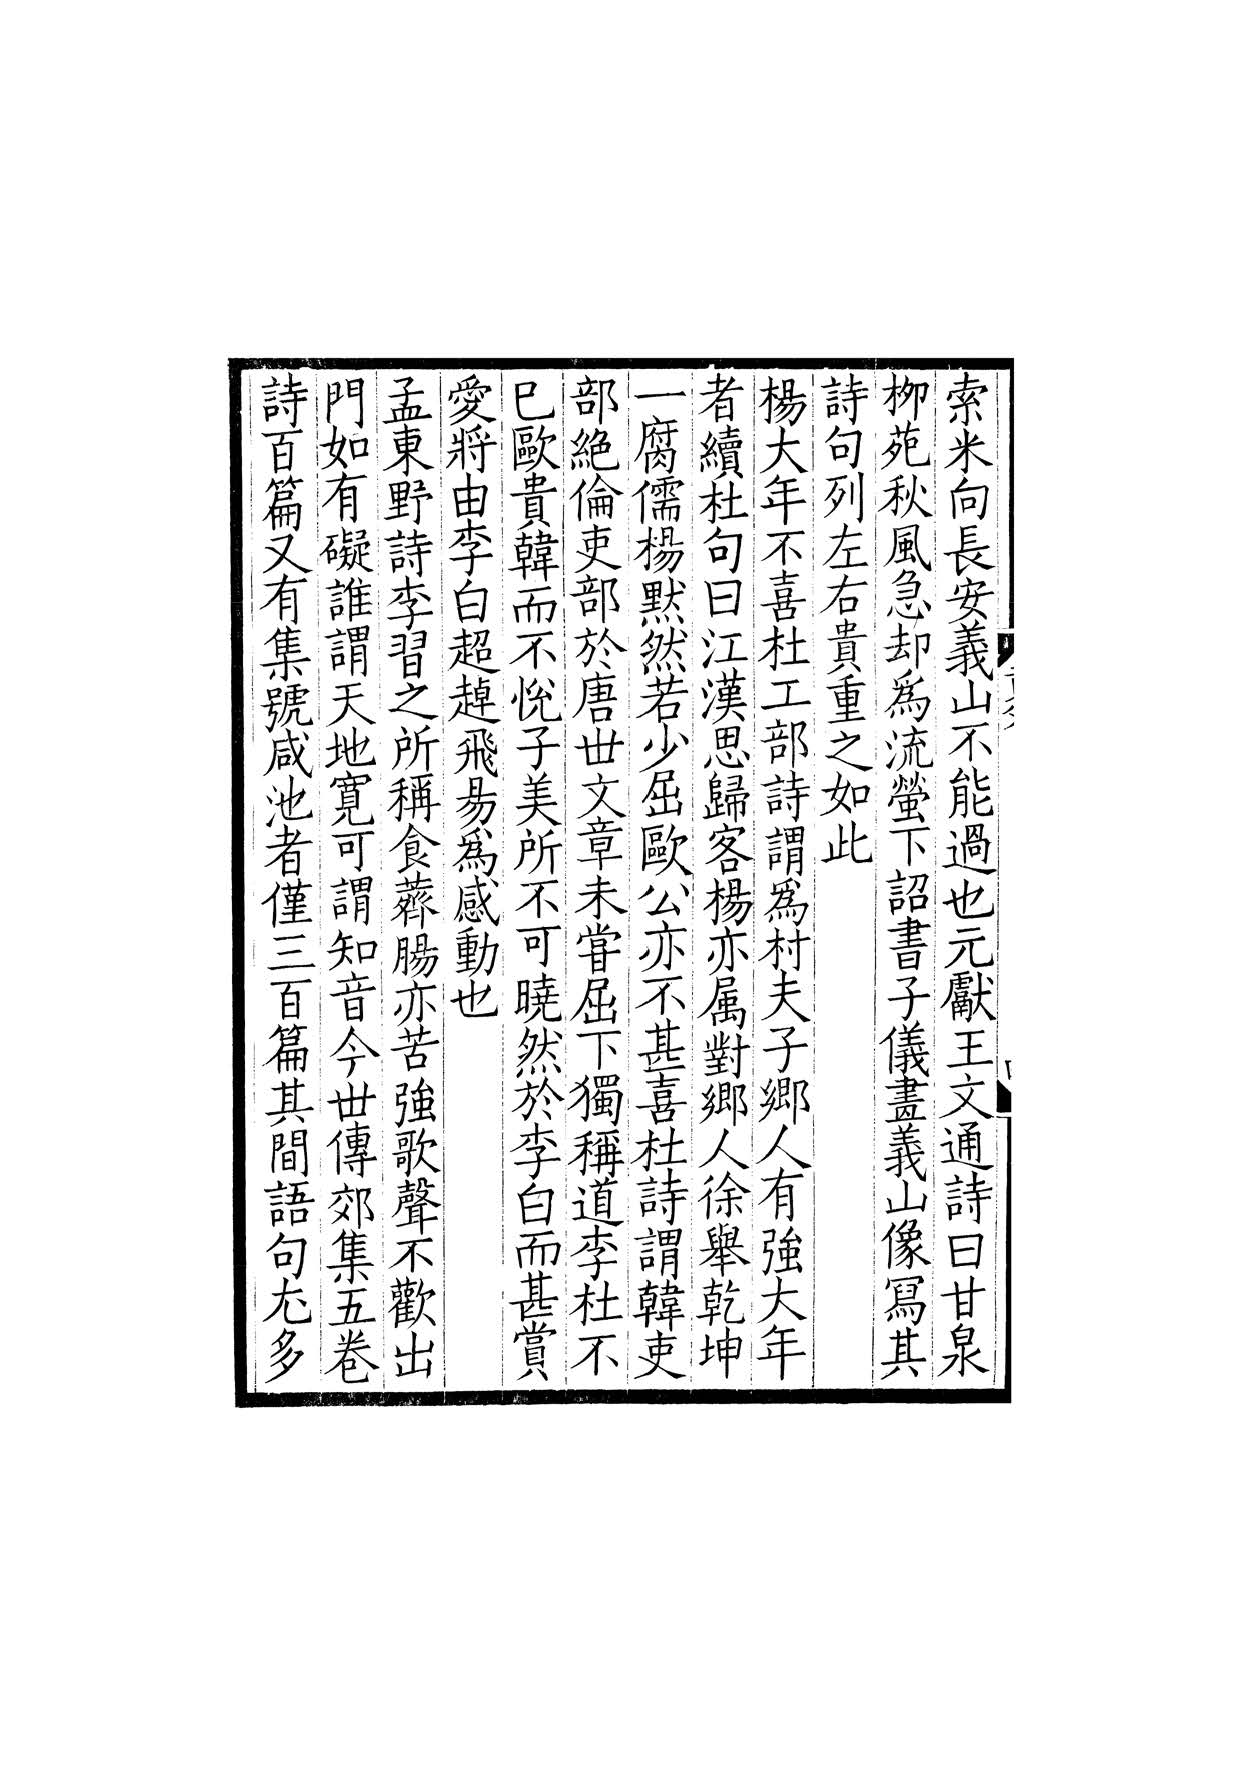 索米向長安義山不能過也元獻王文通詩曰甘泉
柳苑秋風急却爲流螢下詔書子儀畫義山像冩其
詩句列左右貴重之如此
楊大年不喜杜工部詩謂爲村夫子鄉人有強大年
者續杜句曰江漢思歸客楊亦属對鄉人徐舉乾坤
一腐儒楊默然若少屈歐公亦不甚喜杜詩謂韓吏
部絶倫吏部於唐世文章未甞屈下獨稱道李杜不
已歐貴韓而不恱子美所不可曉然於李白而甚賞
愛將由李白超趠飛昜爲感動也
孟東野詩李習之所稱食薺腸亦苦強歌聲不歡出
門如有礙誰謂天地寛可謂知音今世傳郊集五卷
詩百篇又有集號咸池者僅三百篇其間語句尤多